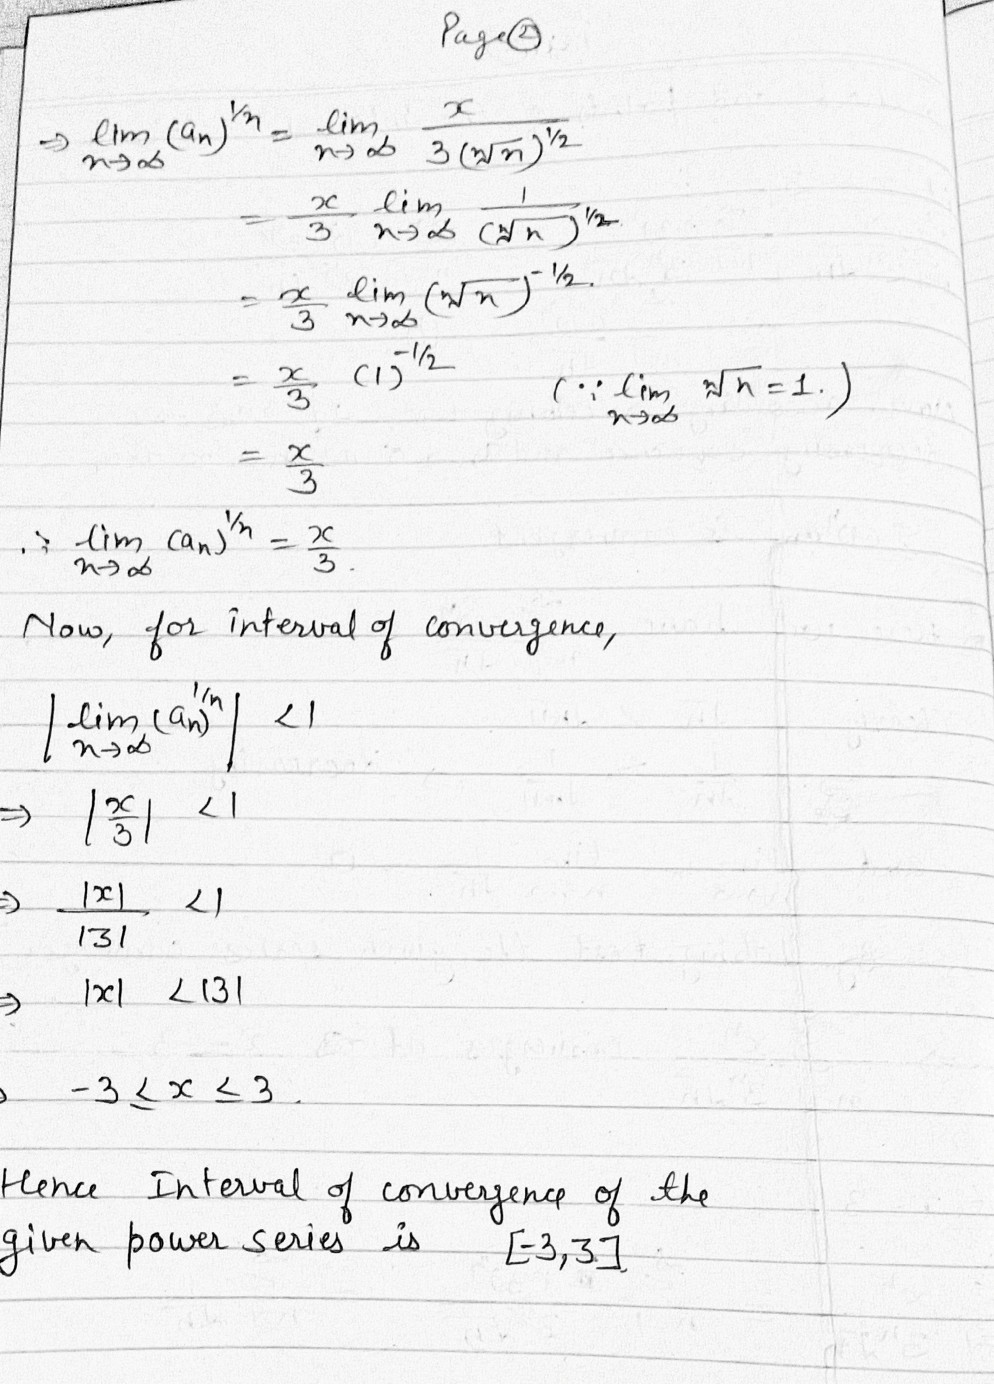 Page ②
⇒ lim n→∞ (an)^1/n = lim n→∞ x / 3(ⁿ√n)^1/2
= x/3 lim n→∞ 1/(ⁿ√n)^1/2
= x/3 lim n→∞ (ⁿ√n)^-1/2.
= x/3 (1)^-1/2 (∵ lim n→∞ ⁿ√n = 1.)
= x/3
∴ lim n→∞ (an)^1/n = x/3.
Now, for interval of convergence,
|lim n→∞ (an)^1/n| < 1
⇒ |x/3| < 1
⇒ |x|/|3| < 1
⇒ |x| < |3|
-3 ≤ x ≤ 3.
Hence Interval of convergence of the
given power series is [-3,3].